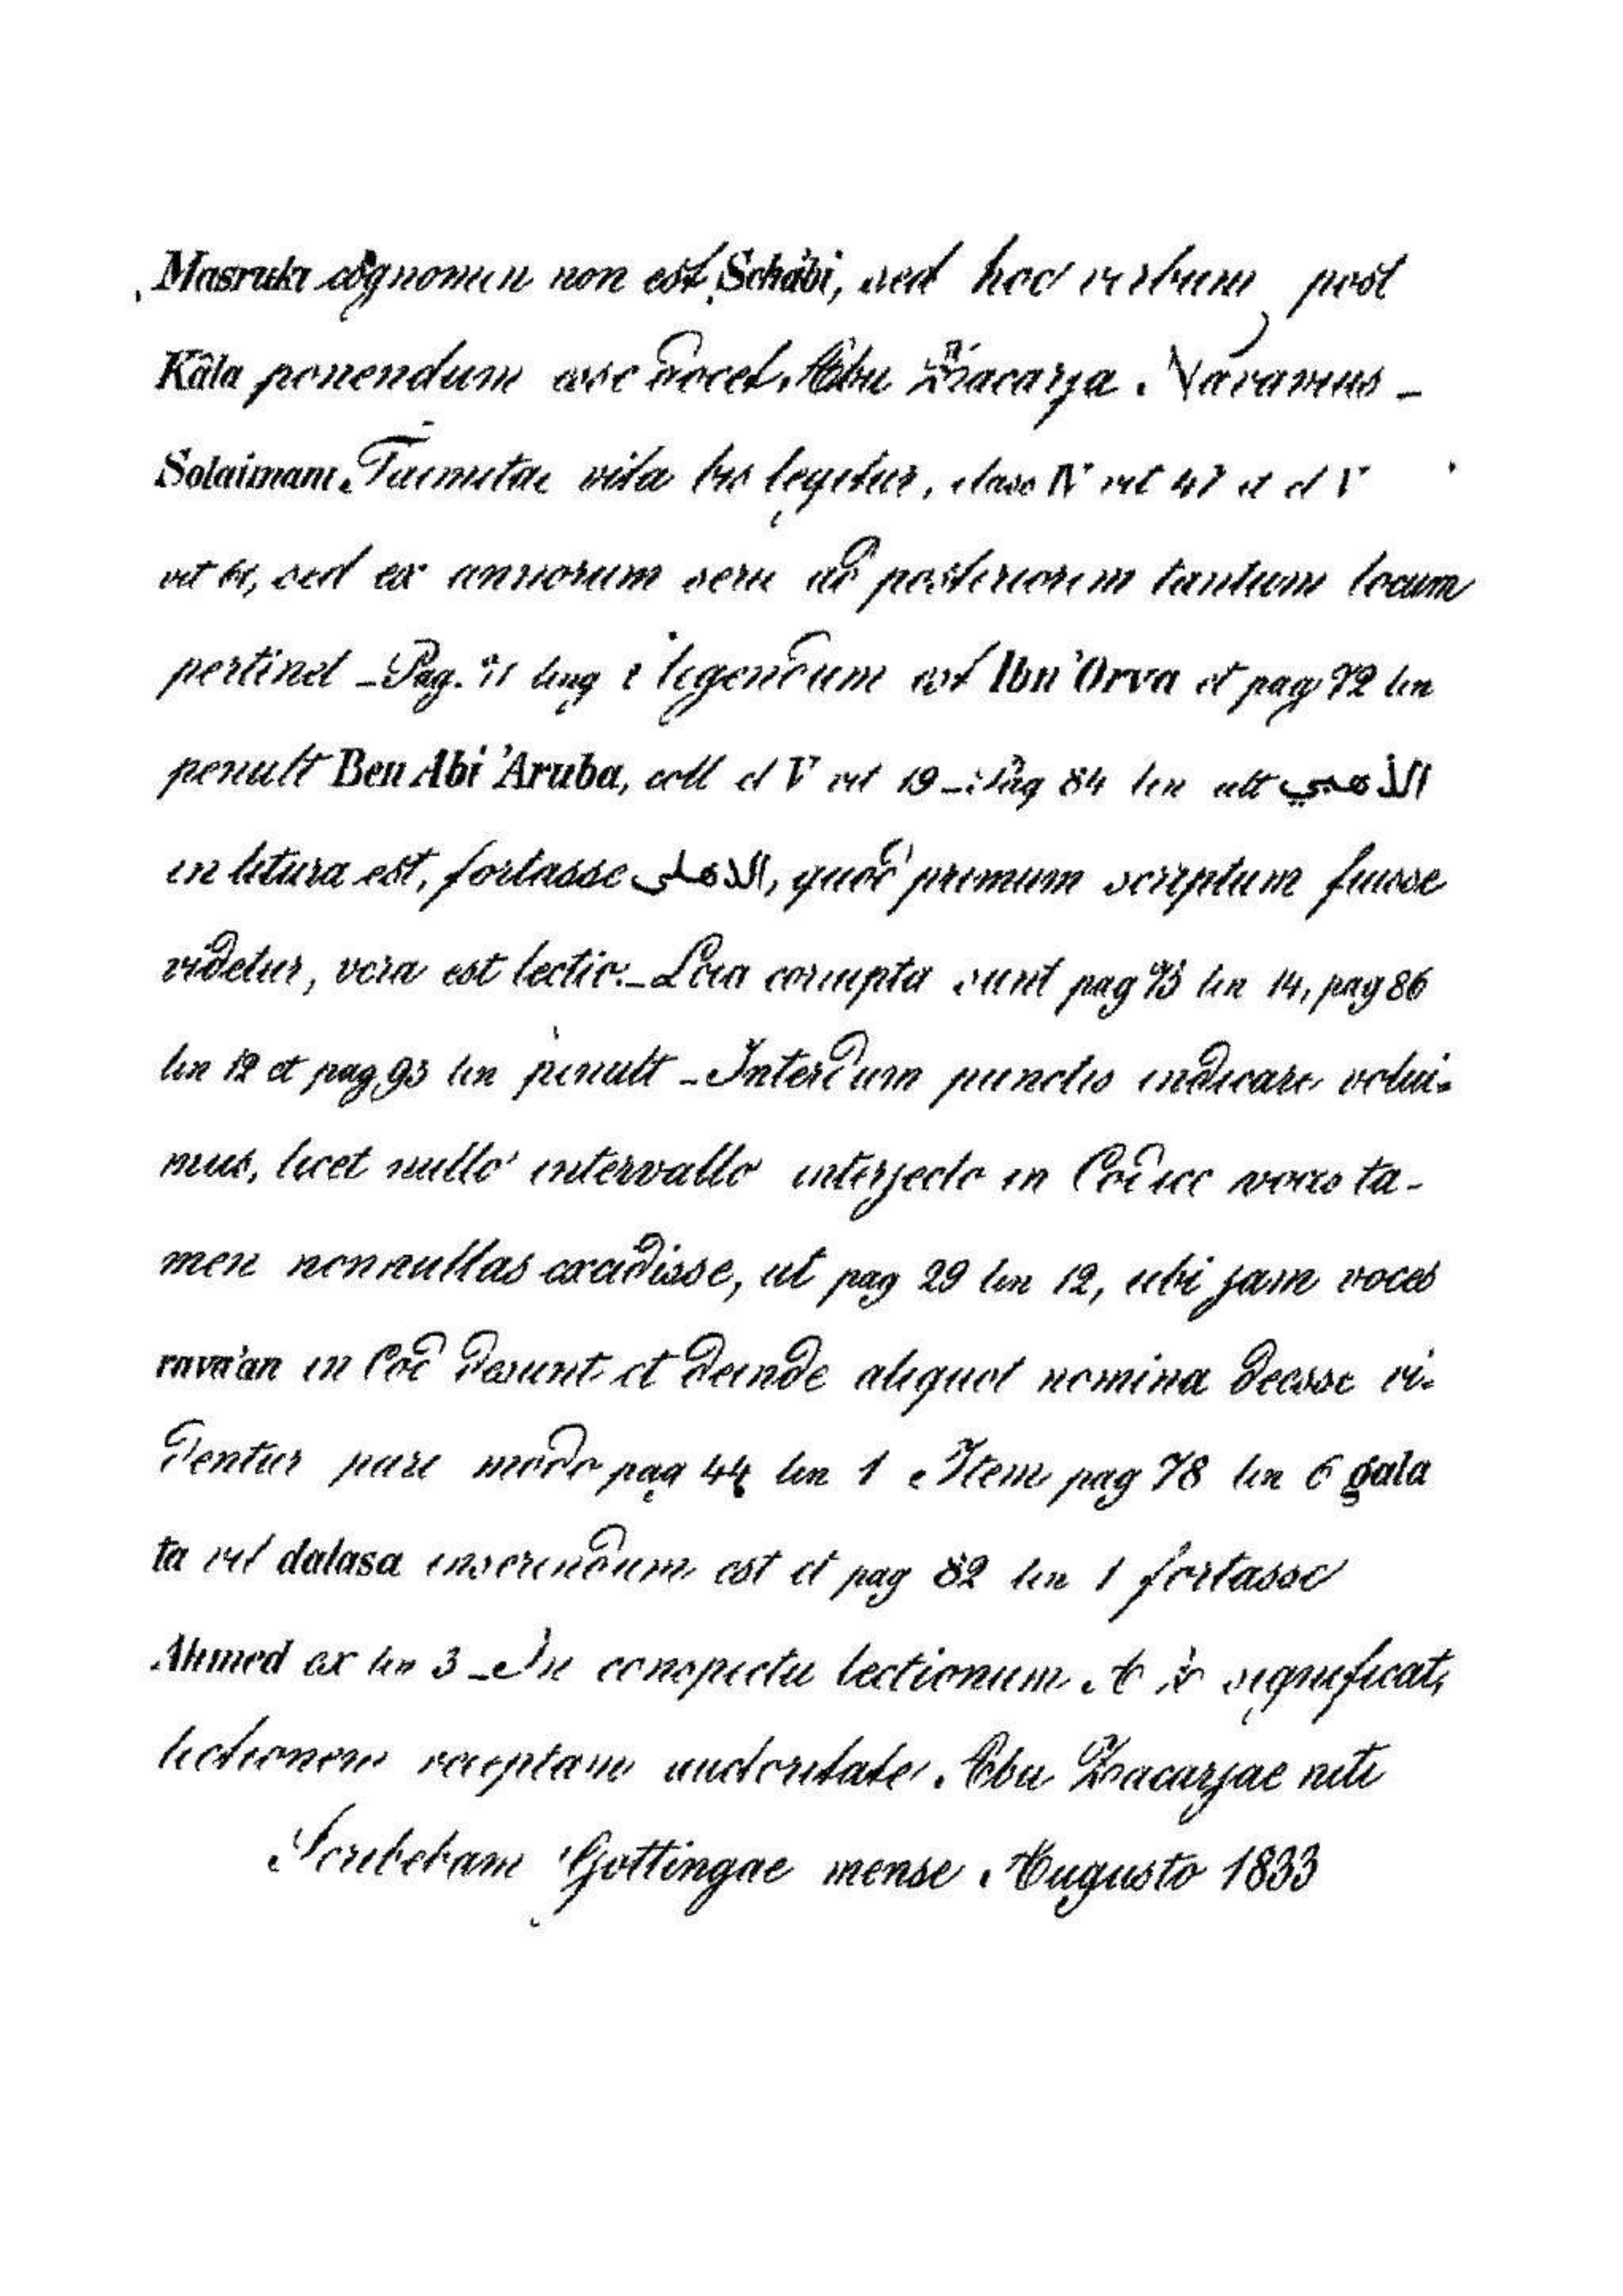 Masruki cognomen non est Schâbi, sed hoc verbum post
Kâla ponendum esse docet Abu Zacarja Navavius –
Solaimani Taimitae vita bis legitur, class IV vit 47 et cl V
vit 61, sed ex annorum serie ad posteriorem tantum locum
pertinet – Pag. 71 lin legendum est Ibn 'Orva et pag 72 lin
penult Ben Abi 'Aruba, coll cl V vit 19 – Pag 84 lin ult الذهبي
in litura est, fortasse الذهلى, quod primum scriptum fuisse
videtur, vera est lectio. – Loca corrupta sunt pag 73 lin 14, pag 86
lin 12 et pag 93 lin penult – Interdum punctis indicare volui-
mus, licet nullo intervallo interjecto in Codice voces ta-
men nonnullas excidisse, ut pag 29 lin 12, ubi jam voces
rava'an in Cod desunt et deinde aliquot nomina deesse vi-
dentur pari modo pag 44 lin 1 Item pag 78 lin 6 gala
ta vel dalasa inserendum est et pag 82 lin 1 fortasse
Ahmed ex lin 3 – In conspectu lectionum A significat,
lectionem receptam auctoritate Abu Zacarjae niti
Scribebam Gottingae mense Augusto 1833